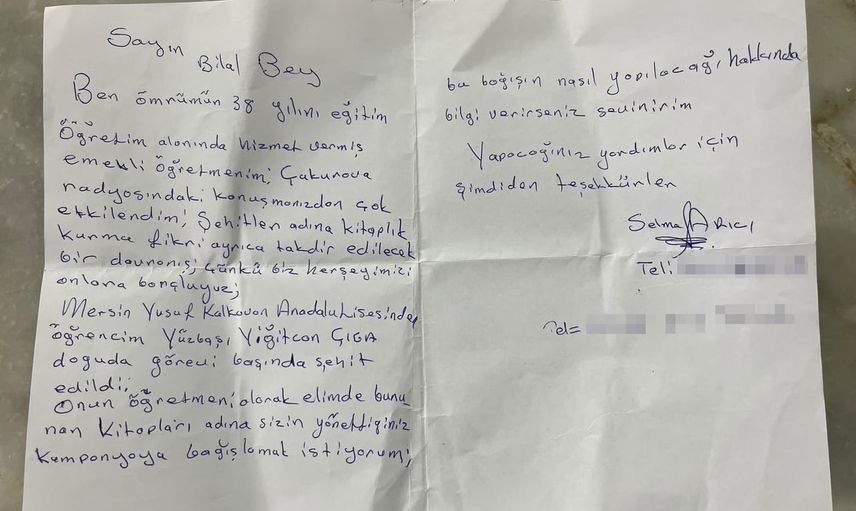 Sayın
Bilal Bey
Ben ömrümün 38 yılını eğitim
Öğretim alanında hizmet vermiş
emekli öğretmenim; Çukurova
radyosındaki konuşmanızdan çok
etkilendim; Şehitler adına kitaplık
kurma fikri ayrıca takdir edilecek
bir davranış; çünkü biz herşeyimizi
onlara borçluyuz;
Mersin Yusuf Kalkavan Anadolu Lisesinden
öğrencim Yüzbaşı Yiğitcan ÇIGA
doguda görevi başında şehit
edildi;
Onun öğretmeni olarak elimde bunu
nan Kitapları adına sizin yönettiginiz
Kampanyaya bağışlamak istiyorum;
bu bağışın nasıl yapılacağı hakkında
bilgi verirseniz sevinirim
Yapacağınız yardımlar için
şimdiden teşekkürler
Selma ARICI
Tel:
Tel=